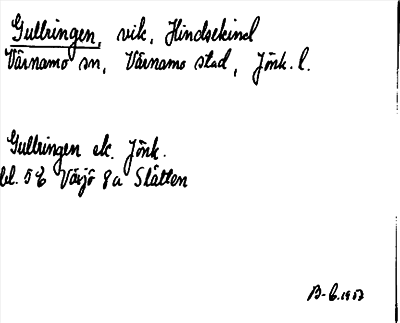 Gullringen, vik, Hindsekind
Värnamo sn, Värnamo stad, Jönk. l.
Gullringen ek. Jönk.
bl. 5E Växjö 8a Slätten
B-b. 1953